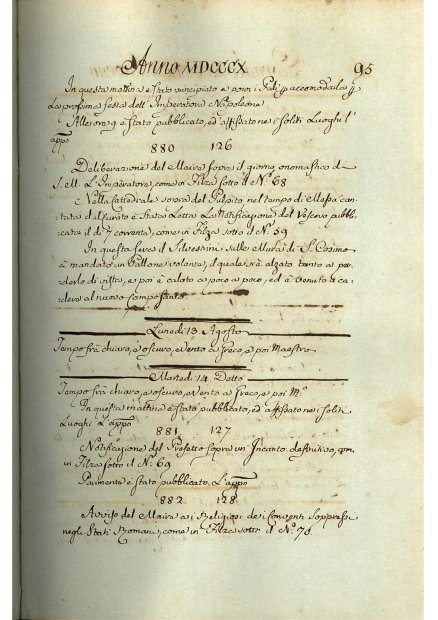 Anno MDCCCX 95
In questa mattina è stato principiato a
La prossima festa dell'Imperatore Napoleone
Alle ore 9 è stato pubblicato, ed affissato nei soliti Luoghi l'
appo
880 126
Deliberazione del Maire sopra il giorno onomastico di
S. M. L'Imperatore, come in Filza sotto il N° 68
E nella Cattedrale sopra del Pulpito nel tempo di Messa can-
tata dal curato è stata Letta La Notificazione del Vescovo pubbli-
cata il dì 7 corrente, come in Filza sotto il N° 59
In questa sera il Silvestrini sulle Mura di S. Cosimo
à mandato un Pallone volante, il quale si è alzato tanto a per-
derlo di vista, e poi è calato a poco a poco, ed è venuto a ca-
dere al nuovo Camposanto
Lunedì 13. Agosto
Tempo frà chiaro, e oscuro, e Vento a Greco, e poi Maestro
Martedì 14. Detto
Tempo frà chiaro, e oscuro, e Vento a Greco, e poi M.°
In questa mattina è stato pubblicato, ed affissato nei soliti
Luoghi L'appo
881 127
Notificazione del Prefetto sopra un Incanto definitivo, come
in Filza sotto il N° 69
Parimente è stato pubblicato L'appo
882 128
Avviso del Maire ai Religiosi dei Conventi Soppressi
negli Stati Romani, come in Filza sotto il N° 70